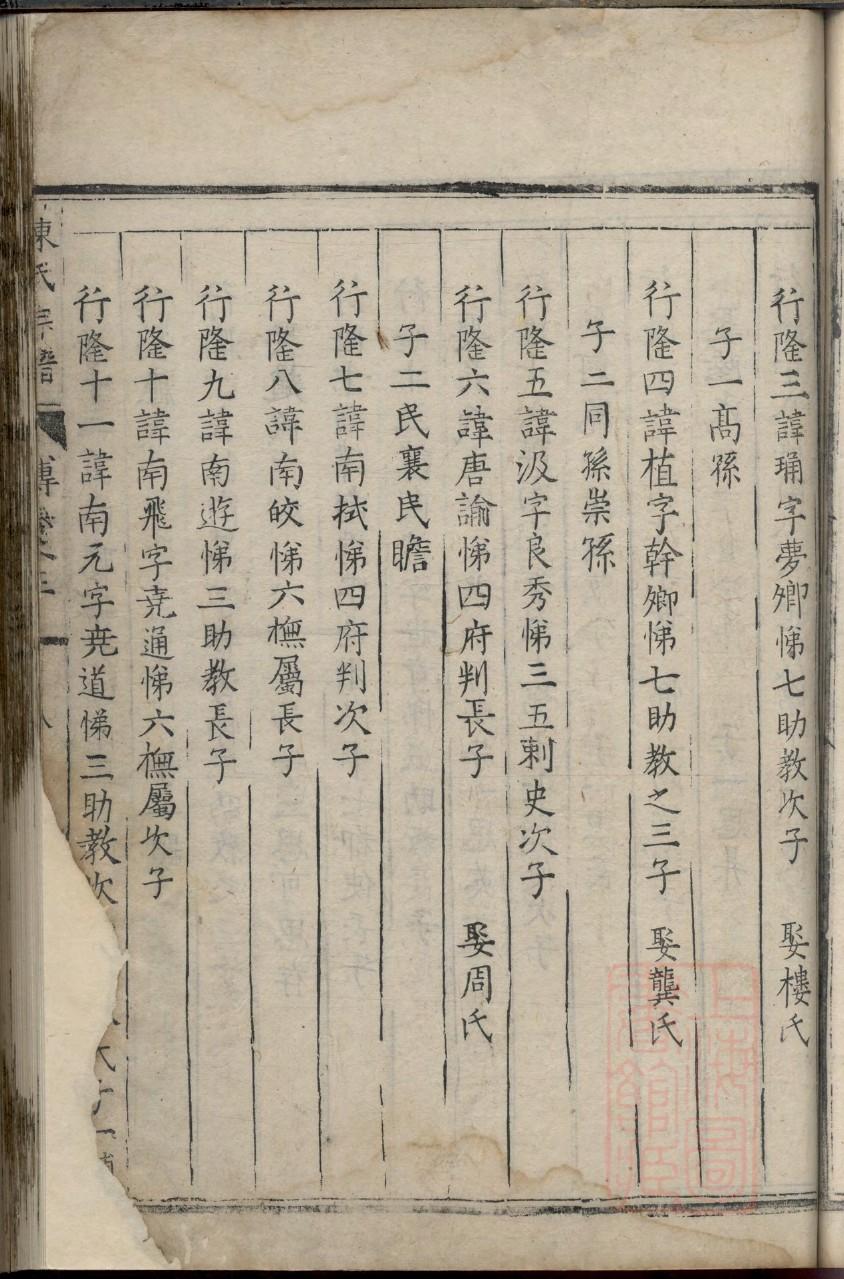 行隆三諱琱字夢卿悌七助教次子 娶樓氏
子一髙孫
行隆四諱植字幹卿悌七助教之三子 娶龔氏
子二同孫崇孫
行隆五諱汲字良秀悌三五刺史次子
行隆六諱唐諭悌四府判長子 娶周氏
子二民襄民瞻
行隆七諱南栻悌四府判次子
行隆八諱南皎悌六橅屬長子
行隆九諱南遊悌三助教長子
行隆十諱南飛字尭通悌六橅屬次子
行隆十一諱南元字尭道悌三助教次
陳氏宗譜 傳卷之三 八